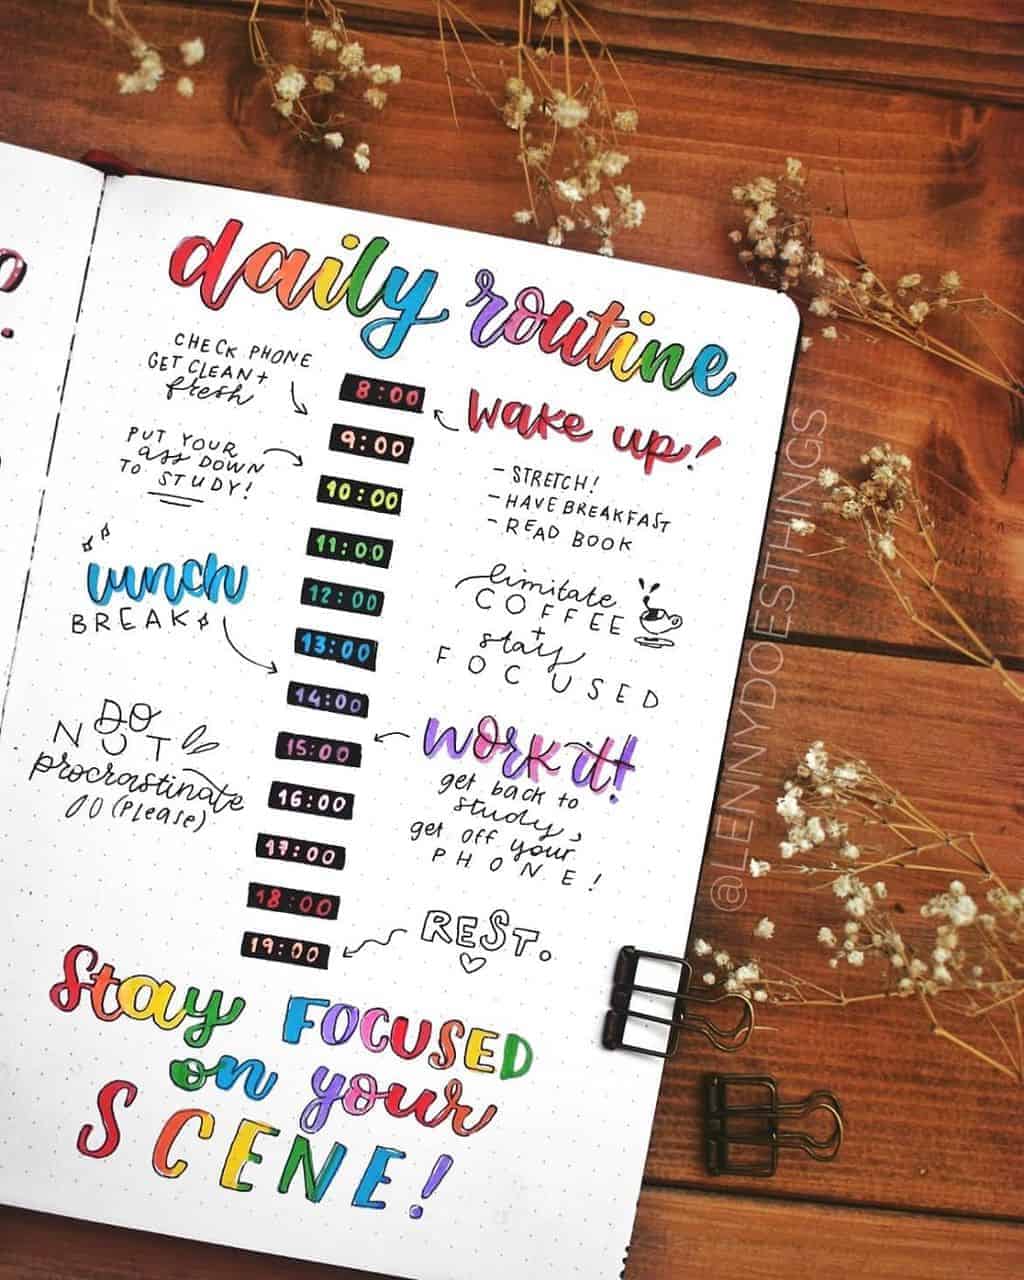 daily routine
CHECK PHONE
GET CLEAN +
fresh
8:00
wake up!
9:00
- STRETCH!
- HAVE BREAKFAST
- READ BOOK
PUT YOUR
ass DOWN
TO STUDY!
10:00
11:00
lunch
BREAK
12:00
limitate
COFFEE
+
stay
FOCUSED
13:00
14:00
DO
NOT
procrastinate
(Please)
15:00
work it!
get back to
study,
get off your
PHONE!
16:00
17:00
18:00
19:00
REST.
Stay FOCUSED
on your
SCENE!
@LENNYDOESTHINGS